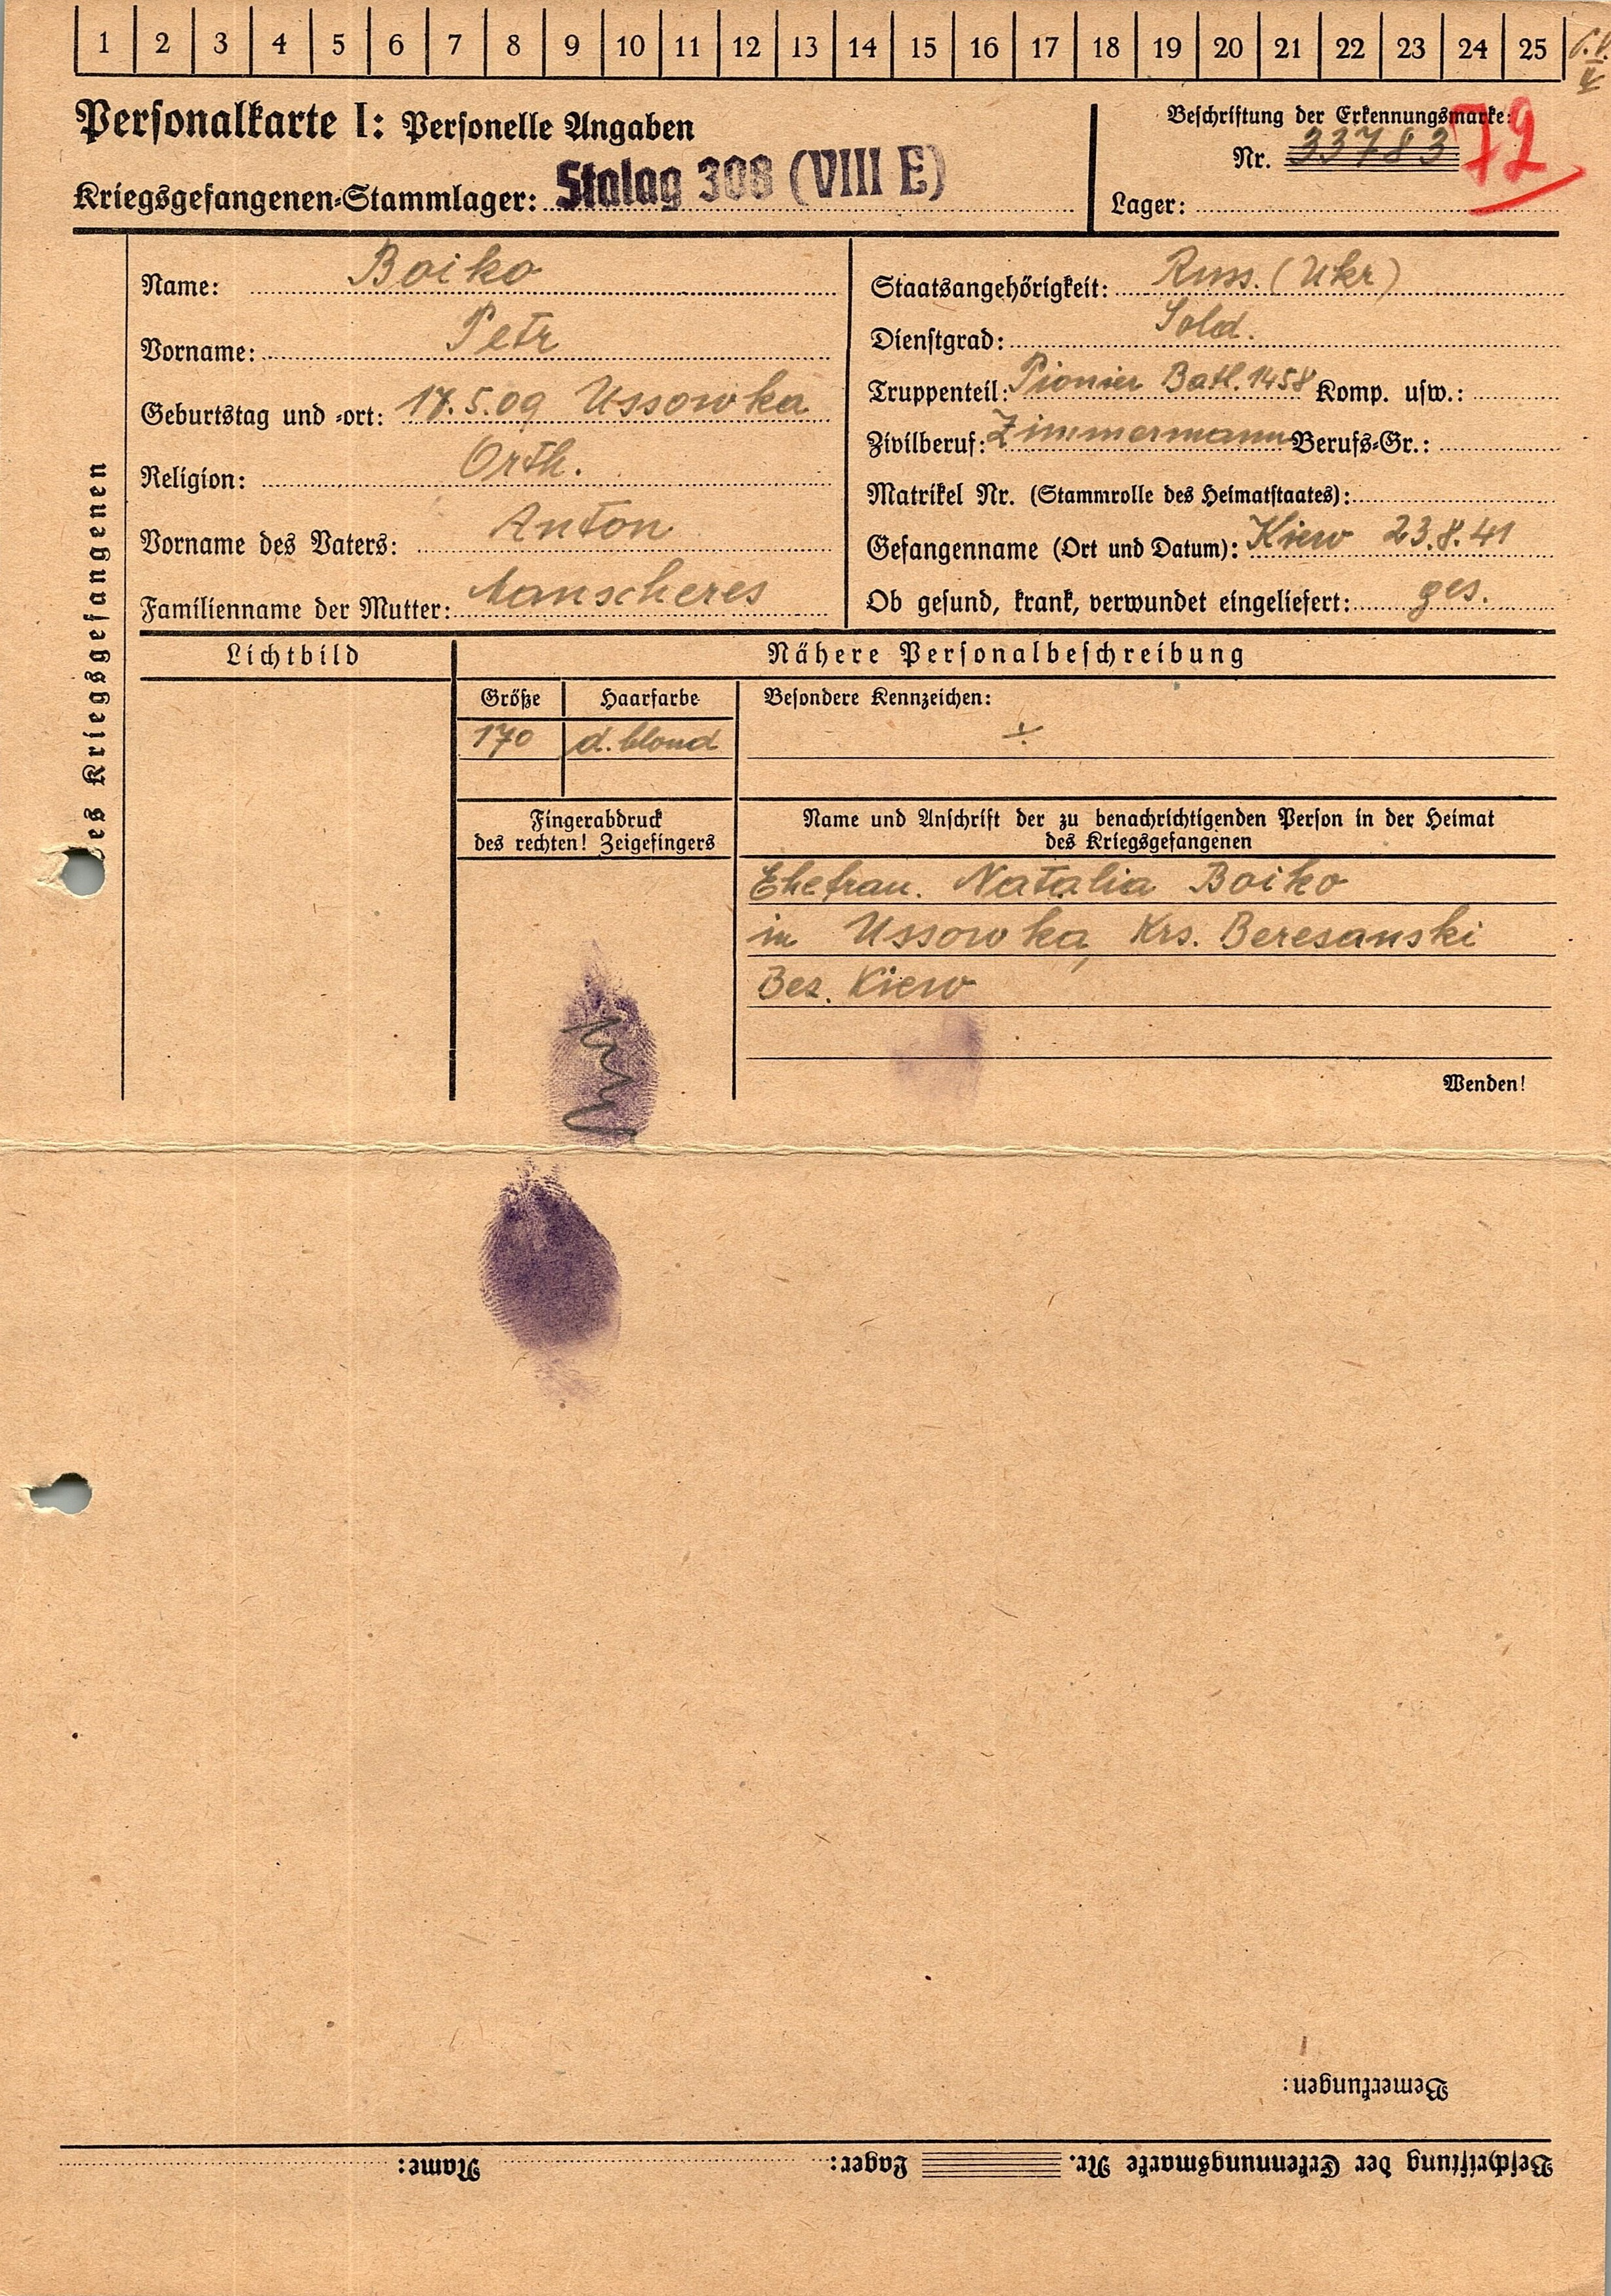 1 2 3 4 5 6 7 8 9 10 11 12 13 14 15 16 17 18 19 20 21 22 23 24 25
Personalkarte I: Personelle Angaben
Kriegsgefangenen-Stammlager: Stalag 308 (VIII E)
Beschriftung der Erkennungsmarke:
Nr. 33783
72
Lager:
des Kriegsgefangenen
Name: Boiko
Vorname: Petr
Geburtstag und -ort: 17.5.09 Ussowka
Religion: Orth.
Vorname des Vaters: Anton
Familienname der Mutter:
Staatsangehörigkeit: Russ. (Ukr)
Dienstgrad: Sold.
Truppenteil: Pionier Batl. 1458 Komp. usw.:
Zivilberuf: Zimmermann Berufs-Gr.:
Matrikel Nr. (Stammrolle des Heimatstaates):
Gefangenname (Ort und Datum): Kiew 23.8.41
Ob gesund, krank, verwundet eingeliefert: ges.
Lichtbild
Nähere Personalbeschreibung
Größe Haarfarbe Besondere Kennzeichen:
170 d. blond
Fingerabdruck
des rechten! Zeigefingers
Name und Anschrift der zu benachrichtigenden Person in der Heimat
des Kriegsgefangenen
Ehefrau. Natalia Boiko
in Ussowka, Krs. Beresanski
Bez. Kiew
Wenden!
Bemerkungen:
Beschriftung der Erkennungsmarke Nr. Lager: Name: